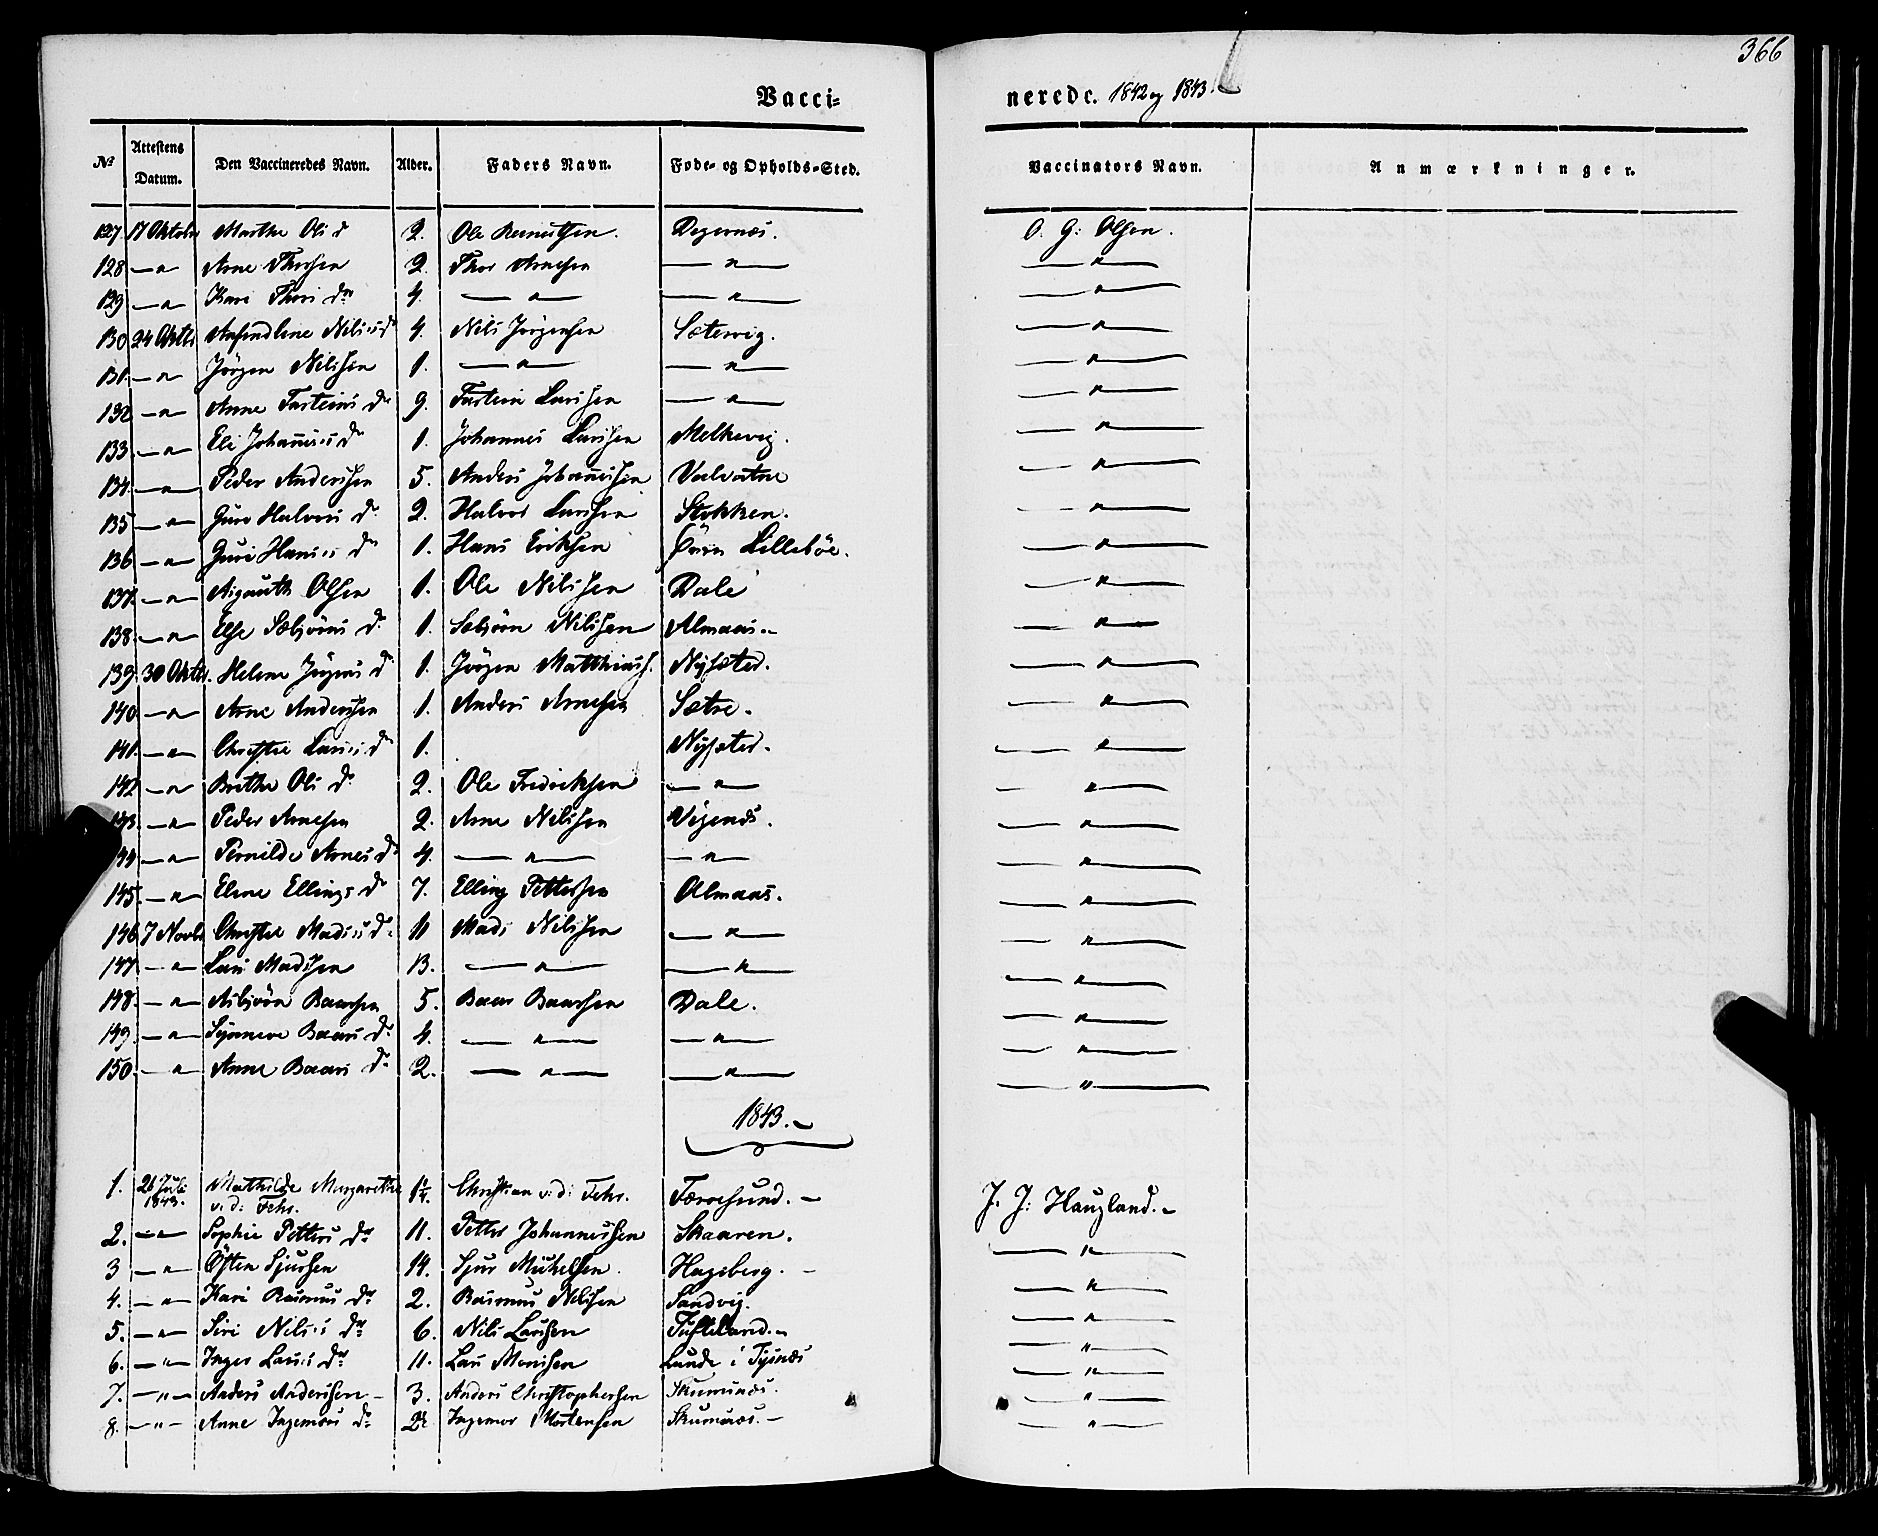 366
Vacci= nerede. 1842 og 1843.
No Attestens Datum. Den Vaccineredes Navn. Alder. Faders Navn. Føde- og Opholds-Sted. Vaccinators Navn. Anmærkninger.
127. 17 Oktobr Marthe Olsd 2. Ole Degernæs. O. G. Olsen.
128 —"— Arne Thorsen 2. Thor Arnesen —"— —"—
129 —"— Kari Thors dr 4. —"— —"— —"—
130 24 Oktbr Nilsesdr 4. Nils Jörgensen Sætervig. —"—
131. —"— Jörgen Nilssen 1. —"— —"— —"—
132 —"— Anne Tosteins dr 9. Tostein Larssen —"— —"—
133 —"— Eli Johannesd 1. Johannes Larssen Melkevig. —"—
134. —"— Peder Anderssen 5. Anders Johannessen Valvatne —"—
135 —"— Guro Halvors d 2. Halvor Larssen Stokken. —"—
136 —"— Guri Hanses d 1. Hans Eriksen Lilleböe. —"—
137. —"— Olsen 1. Ole Nilssen Dale —"—
138. —"— Else Sæbjörns d. 1. Sæbjörn Nilssen Almaas. —"—
139. 30 Oktbr. Helene Jörgens d 1. Jörgen Matthias. Nysæter. —"—
140 —"— Arne Anderssen 1. Anders Arnesen Sætre. —"—
141. —"— Christie Larses d 1. Nysæter. —"—
142 —"— Brithe Ols d. 2. Ole Fredriksen —"— —"—
143. —"— Peder Arnesen 2. Arne Nilssen Vigenæs. —"—
144 —"— Pernilde Arnes d 4. —"— —"— —"—
145. —"— Elene Ellings d 7. Elling Pettersen Almaas. —"—
146 7 Novbr Christie Madses d. 11 Mads Nilssen —"— —"—
147 —"— Lars Madssen 13. —"— —"— —"—
148. —"— Asbjörn Baarsen 5. Baar Baarsen Dale. —"—
149 —"— Synneve Baars d. 4. —"— —"— —"—
150. —"— Anne Baars d. 2. —"— —"— —"—
1843.
1. 26 Juli 1843. Mathilde Margarethe v. d. Fehr. Christian v. d. Fehr. Færøesund. J. J. Haugland.
2. —"— Sophie Petters dr 11. Petter Johannessen Skaaren. —"—
3 —"— Östen Sjursen 14. Sjur Mikelsen. Hageberg. —"—
4. —"— Kari Rasmus dr 2. Rasmus Nilssen Sandvig. —"—
5. —"— Siri Nilses dr 6. Nils Larssen Tufteland. —"—
6. —"— Inger Larses dr 11. Lars Monsen Lunde i Tysnæs —"—
7. —"— Anders Anderssen 3. Anders Christophersen Skumsnæs. —"—
8. —"— Anne Ingemors dr Ingemor Mortensen Skumsnæs. —"—